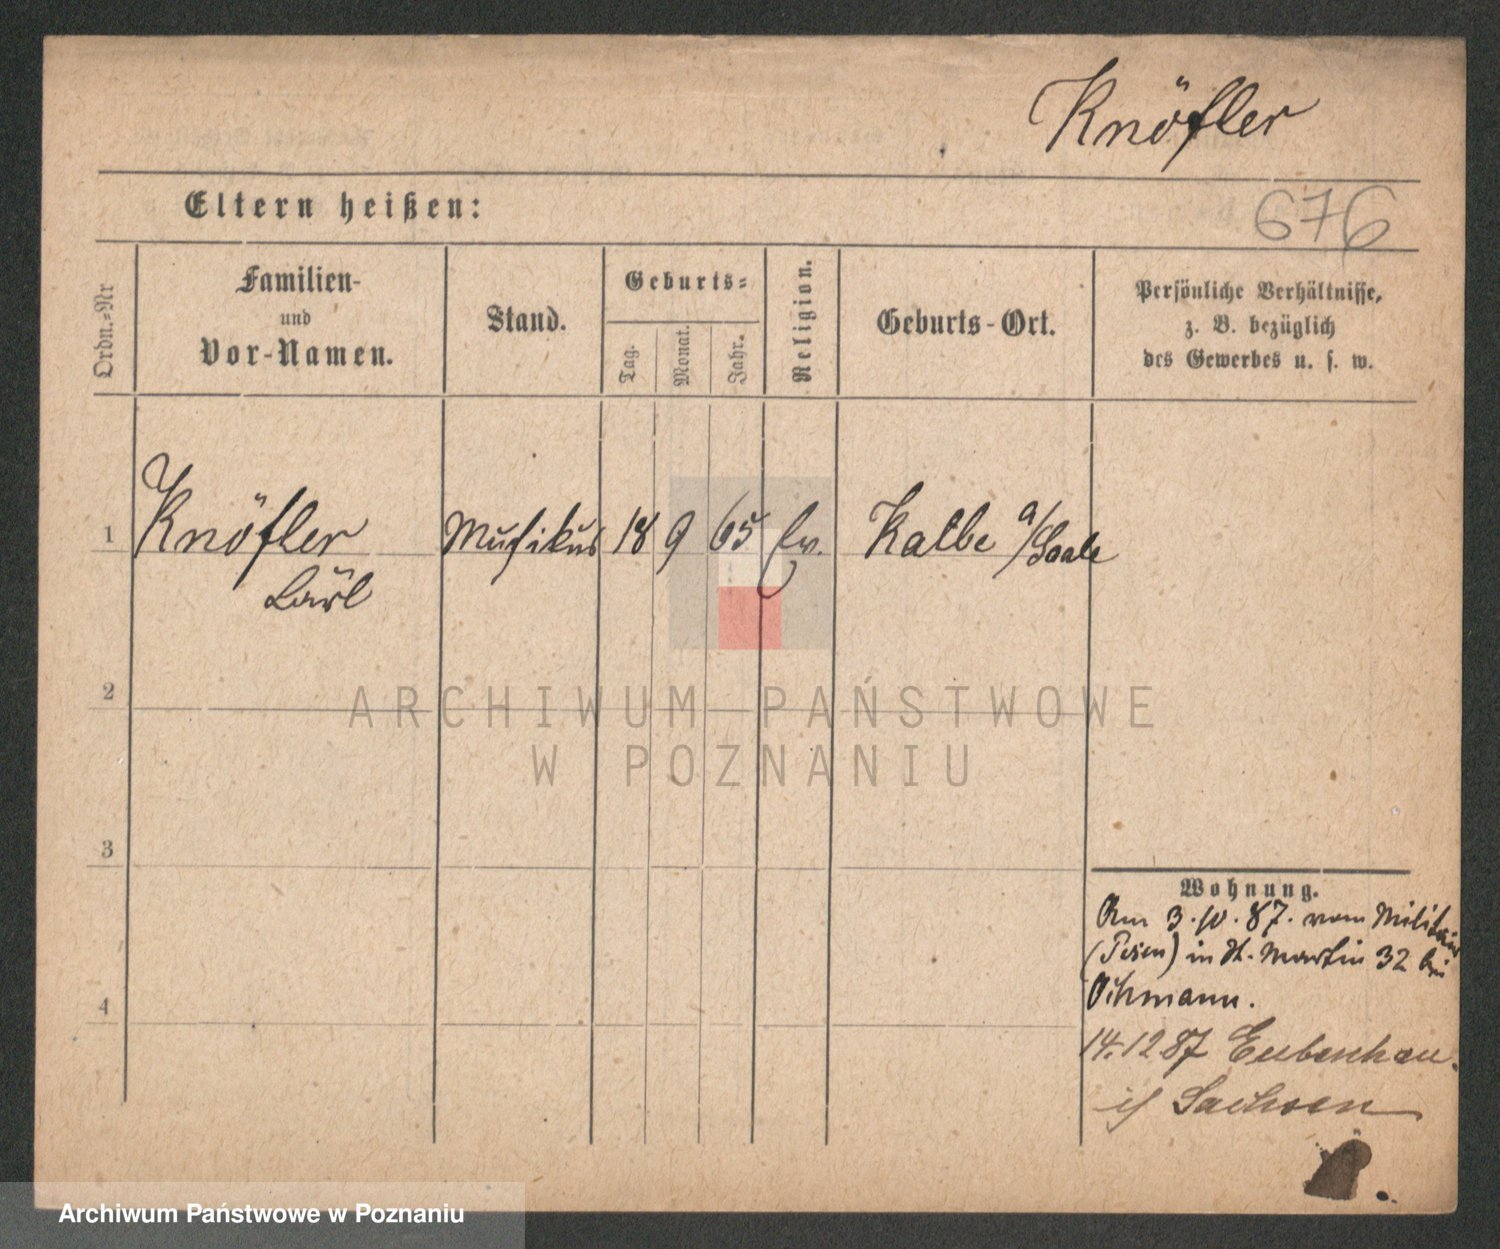 Knöfler
Eltern heißen:
676
Ordn.-Nr
Familien-
und
Vor-Namen.
Stand.
Geburts-
Tag.
Monat.
Jahr.
Religion.
Geburts-Ort.
Persönliche Verhältnisse,
z. B. bezüglich
des Gewerbes u. s. w.
1 Knöfler Musikus 18 9 65 Ev. Kalbe a/Saale
Carl
2
ARCHIWUM PAŃSTWOWE
W POZNANIU
3
Wohnung.
Am 3.10.87. vom Militair
(Posen) in St. Martin 32 bei
4
14.12 87
i/ Sachsen
Archiwum Państwowe w Poznaniu